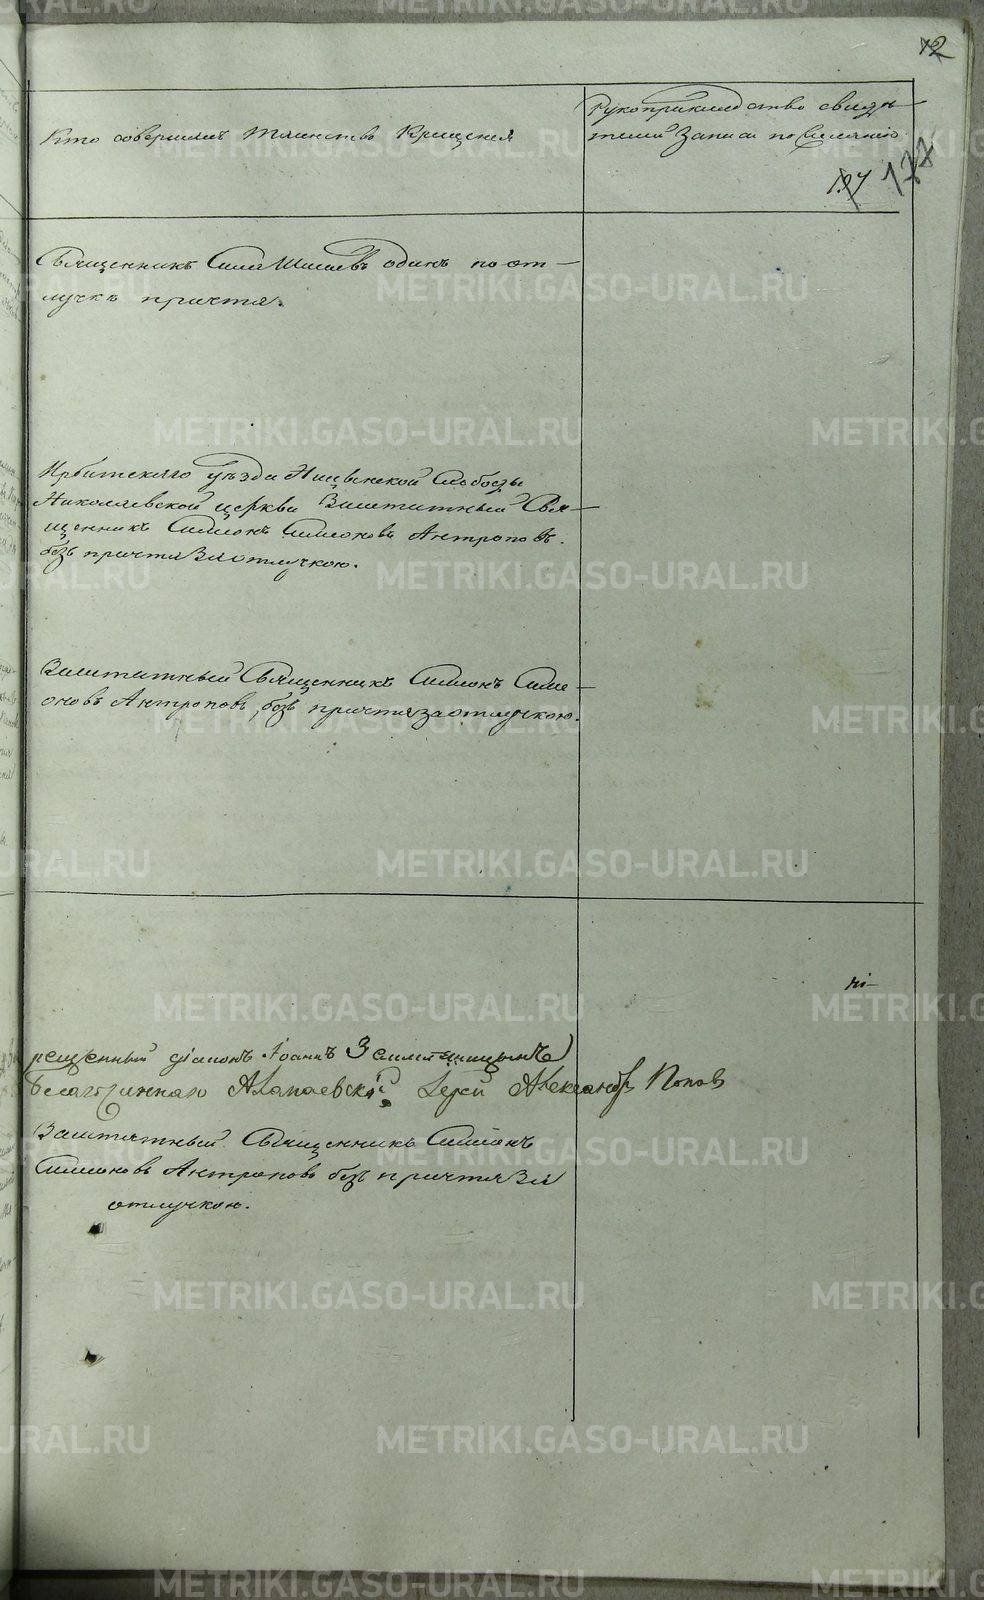 12
Кто совершалъ таинство Крещенія
Рукоприкладство свидѣ-
телей записи по желанію
197 177
Священникъ Сила Шишевъ одинъ по от-
лучкѣ причта.
Ирбитскаго уѣзда Ницынской Слободы
Николаевской церкви Заштатный Свя-
щенникъ Симеонъ Симеоновъ Антроповъ.
безъ причта за отлучкою.
Заштатный Священникъ Симеонъ Симе-
оновъ Антроповъ, безъ причта за отлучкою.
рещенный діаконъ Іоаннъ
Благочинный Алапаевскій Іерей Александръ Попов
Заштатный Священникъ Симеонъ
Симеоновъ Антроповъ безъ причта за
отлучкою.
METRIKI.GASO-URAL.RU